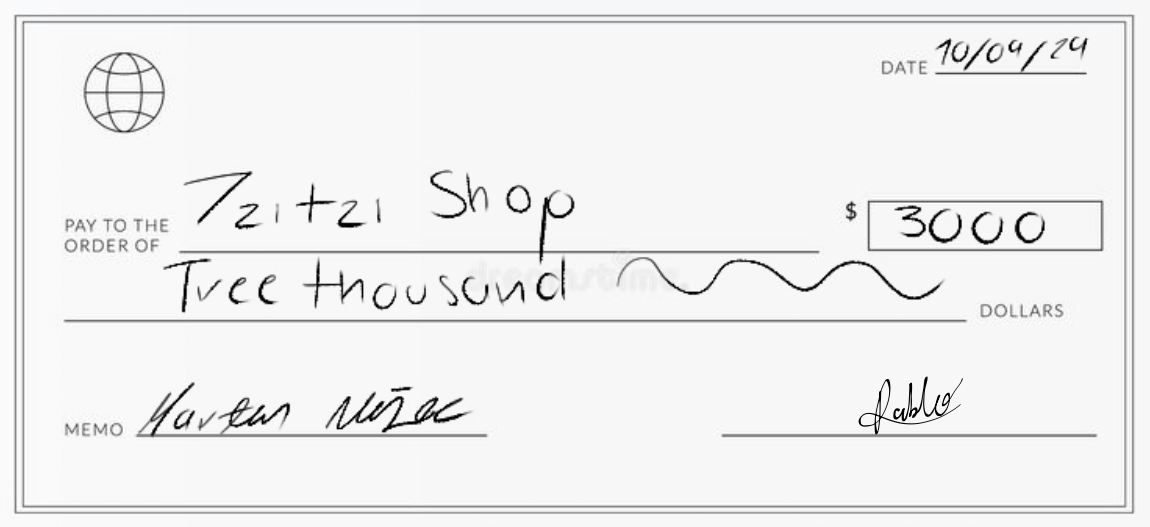 DATE 10/09/24
PAY TO THE
ORDER OF Tzitzi Shop $ 3000
Tree thousand DOLLARS
dreamstime.
MEMO
Pablo